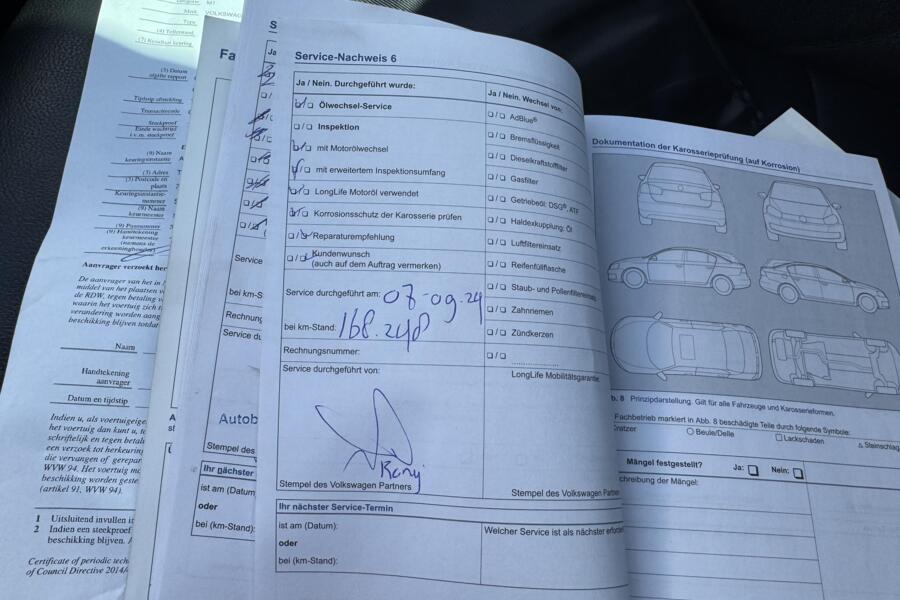 VOLKSWAG
Merk
Type
(4) Tellerstand
(5) Datum
afgifte rapport
Tijdstip afmelding
Transactiecode
Steekproef
Einde wachttijd
i.v.m. steekproef
(9) Naam
keuringsinstantie
(3) Adres
(3) Postcode en
plaats
Keuringsinstantie-
nummer
(9) Naam
keurmeester
(9) Pasnummer
(9) Handtekening
keurmeester
Aanvrager verzoekt her
De aanvrager van het in
middel van het plaatsen v
de RDW, tegen betaling v
waarin het voertuig zich
verandering worden aang
beschikking blijven totdat
Naam
Handtekening
aanvrager
Datum en tijdstip
Indien u, als voertuigeige
het voertuig dan kunt u, t
schriftelijk en tegen betal
een verzoek tot herkeurin
die vervangen of gerepar
WVW 94. Het voertuig m
beschikking worden geste
(artikel 91, WVW 94).
1 Uitsluitend invullen i
2 Indien een steekproef
beschikking blijven.
Certificate of periodic tech
of Council Directive 2014/
Fa
S
Ja
Service
bei km-S
Rechnung
Service du
Autob
Stempel des
Ihr nächster
ist am (Datum
oder
bei (km-Stand):
Service-Nachweis 6
Ja / Nein. Durchgeführt wurde:
Ölwechsel-Service
Inspektion
mit Motorölwechsel
mit erweitertem Inspektionsumfang
LongLife Motoröl verwendet
Korrosionsschutz der Karosserie prüfen
Reparaturempfehlung
Kundenwunsch
(auch auf dem Auftrag vermerken)
Service durchgeführt am: 07-09-24
bei km-Stand: 168.248
Rechnungsnummer:
Service durchgeführt von:
Stempel des Volkswagen Partners
Ihr nächster Service-Termin
ist am (Datum):
oder
bei (km-Stand):
Ja / Nein. Wechsel von:
AdBlue®
Bremsflüssigkeit
Dieselkraftstofffilter
Gasfilter
Getriebeöl: DSG®, ATF
Haldexkupplung: Öl
Luftfiltereinsatz
Reifenfüllflasche
Staub- und Pollenfiltereinsatz
Zahnriemen
Zündkerzen
LongLife Mobilitätsgarantie
Stempel des Volkswagen Partner
Welcher Service ist als nächster erforder
Dokumentation der Karosserieprüfung (auf Korrosion)
b. 8 Prinzipdarstellung. Gilt für alle Fahrzeuge und Karosserieformen.
Fachbetrieb markiert in Abb. 8 beschädigte Teile durch folgende Symbole:
ratzer
Beule/Delle
Lackschaden
Steinschlag
Mängel festgestellt?
Ja:
Nein:
chreibung der Mängel: